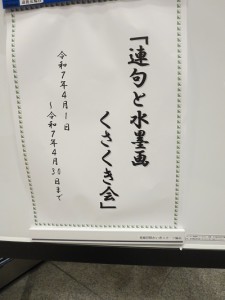 「連句と水墨画
くさくき会」
令和7年4月1日
～令和7年4月30日まで